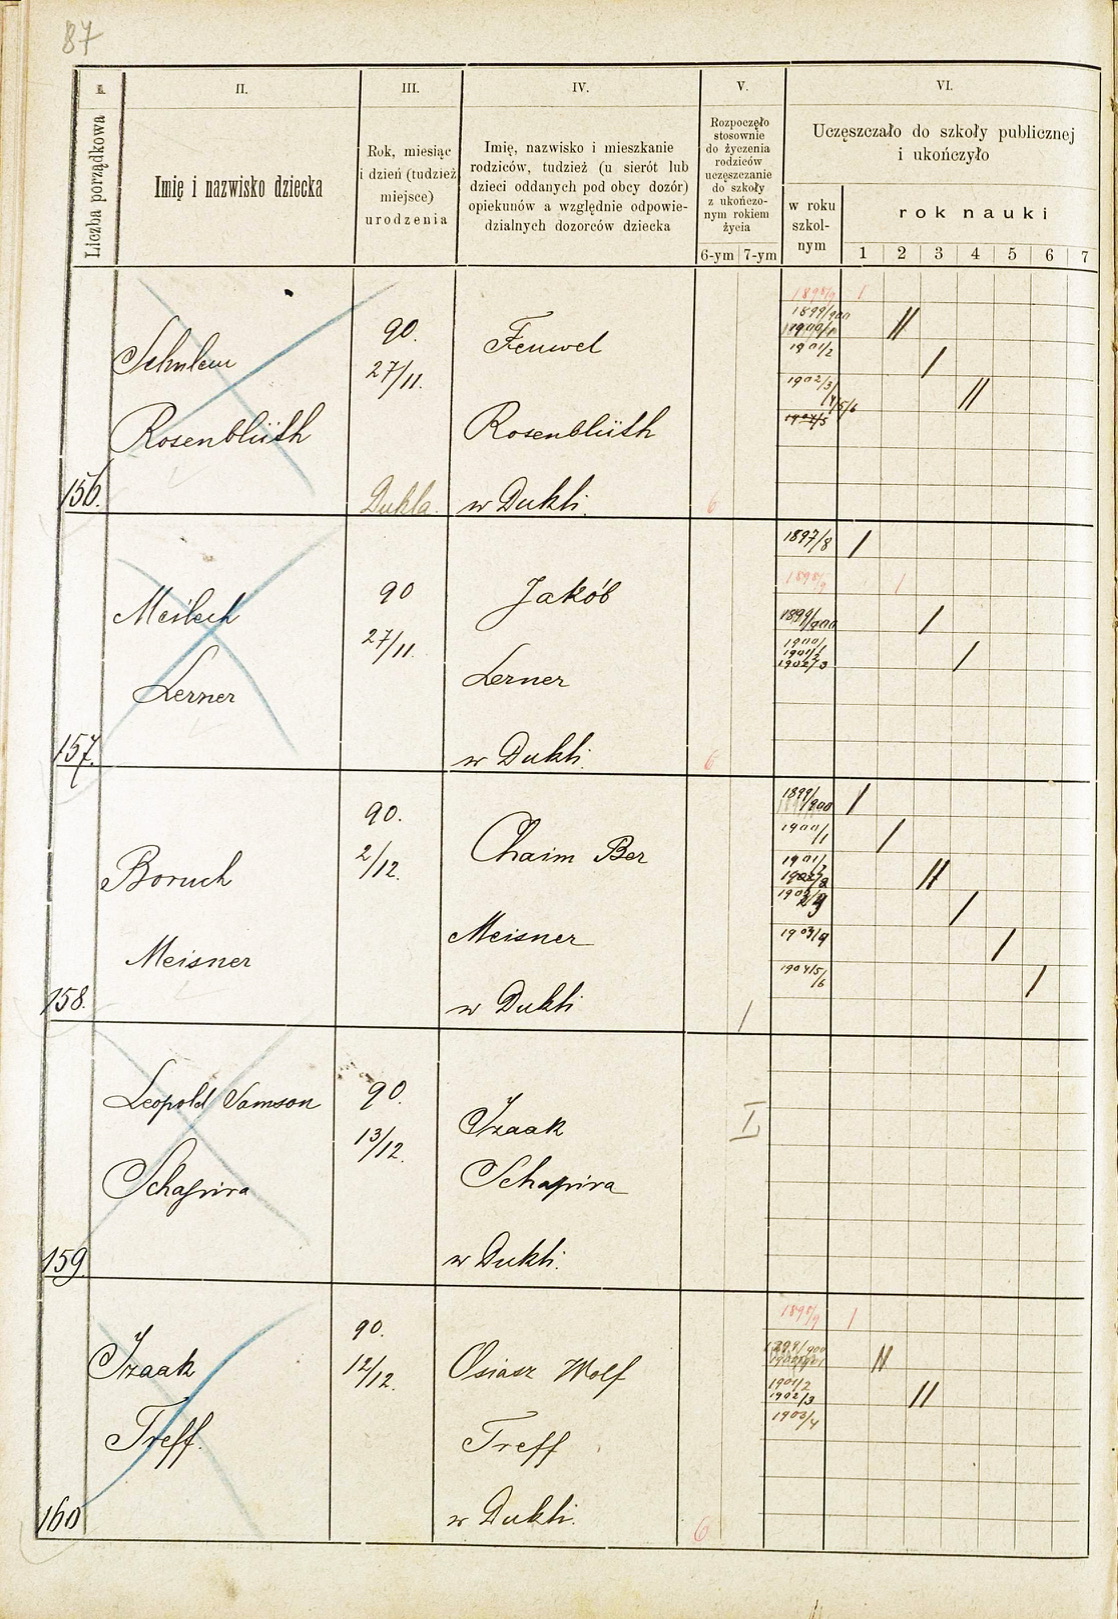 87
I.
II.
III.
IV.
V.
VI.
Liczba porządkowa
Imię i nazwisko dziecka
Rok, miesiąc
i dzień (tudzież
miejsce)
urodzenia
Imię, nazwisko i mieszkanie
rodziców, tudzież (u sierót lub
dzieci oddanych pod obcy dozór)
opiekunów a względnie odpowie-
dzialnych dozorców dziecka
Rozpoczęło
stosownie
do życzenia
rodziców
uczęszczanie
do szkoły
z ukończo-
nym rokiem
życia
6-ym 7-ym
Uczęszczało do szkoły publicznej
i ukończyło
w roku
szkol-
nym
rok nauki
1 2 3 4 5 6 7
156.
Schulem
Rosenblüth
90.
27/11.
Dukla.
Feuwel
Rosenblüth
w Dukli.
6
1898/9 1
1899/900
1900/1 //
1901/2 /
1902/3 //
4/5/6
1904/5
157.
Meilech
Lerner
90
27/11.
Jakób
Lerner
w Dukli.
6
1897/8 /
1898/9 1
1899/900 /
1900/1
1901/2
1902/3 /
158.
Boruch
Meisner
90.
2/12.
Chaim Ber
Meisner
w Dukli
/
1899/900 /
1900/1 /
1901/2 //
/
1903/4 /
1904/5/6 /
159.
Leopold Samson
Schapira
90.
13/12.
Izaak
Schapira
w Dukli.
I
160
Izaak
Treff.
90.
12/12.
Osiasz Wolf
Treff
w Dukli.
6
1898/9 1
1899/900
1900/901 //
1901/2
1902/3 //
1903/4